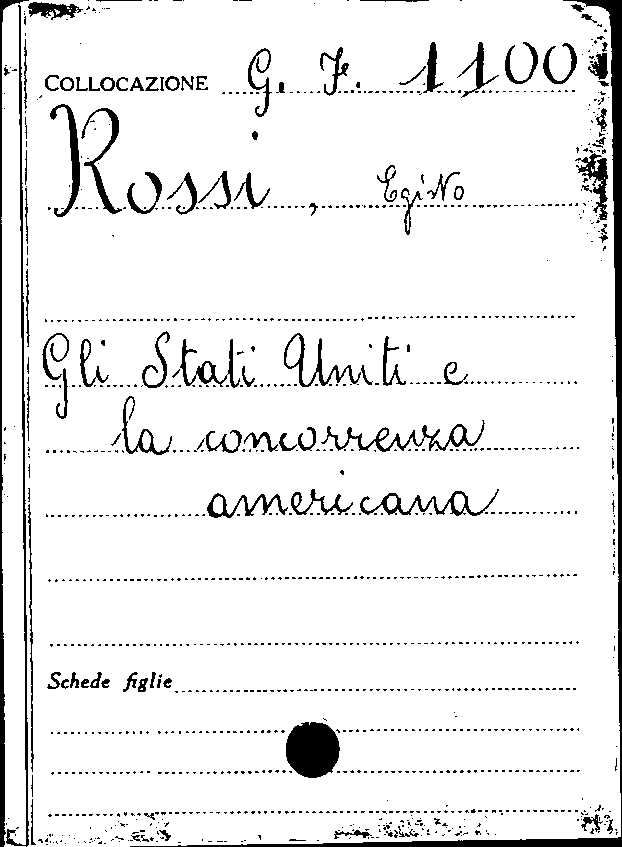 COLLOCAZIONE G. F. 1100
Rossi, Egisto
Gli Stati Uniti e
la concorrenza
americana
Schede figlie